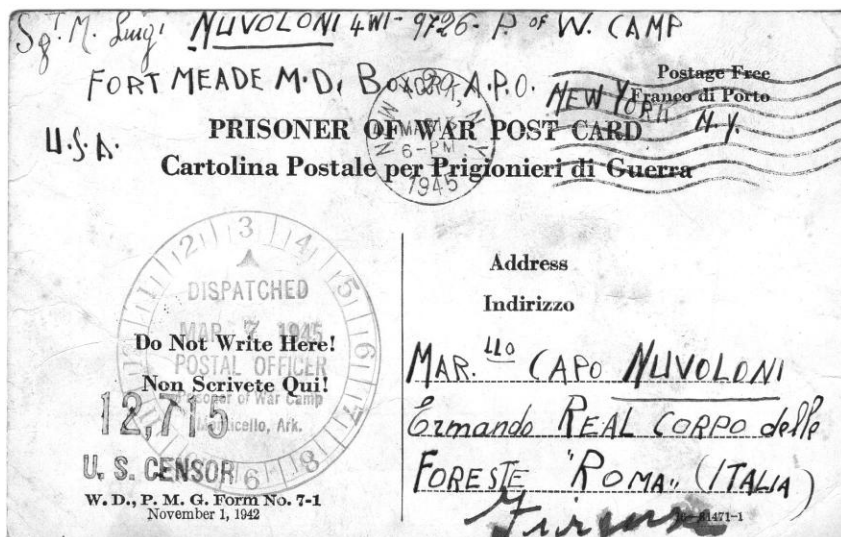 Sgt. M. Luigi NUVOLONI 4WI-9726- P. of W. CAMP
FORT MEADE M.D. Box 20, A.P.O. NEW YORK N.Y.
U.S.A.
Postage Free
Franco di Porto
PRISONER OF WAR POST CARD
Cartolina Postale per Prigionieri di Guerra
N.Y.
MAR
6-PM
1945
2 3 4 5 6 7 8 9
DISPATCHED
MAR 7 1945
POSTAL OFFICER
Prisoner of War Camp
Monticello, Ark.
Do Not Write Here!
Non Scrivete Qui!
12,715
U. S. CENSOR
W. D., P. M. G. Form No. 7-1
November 1, 1942
Address
Indirizzo
MAR.llo CAPO NUVOLONI
Ermando REAL CORPO delle
FORESTE "ROMA" (ITALIA)
Firenze
16—31471-1